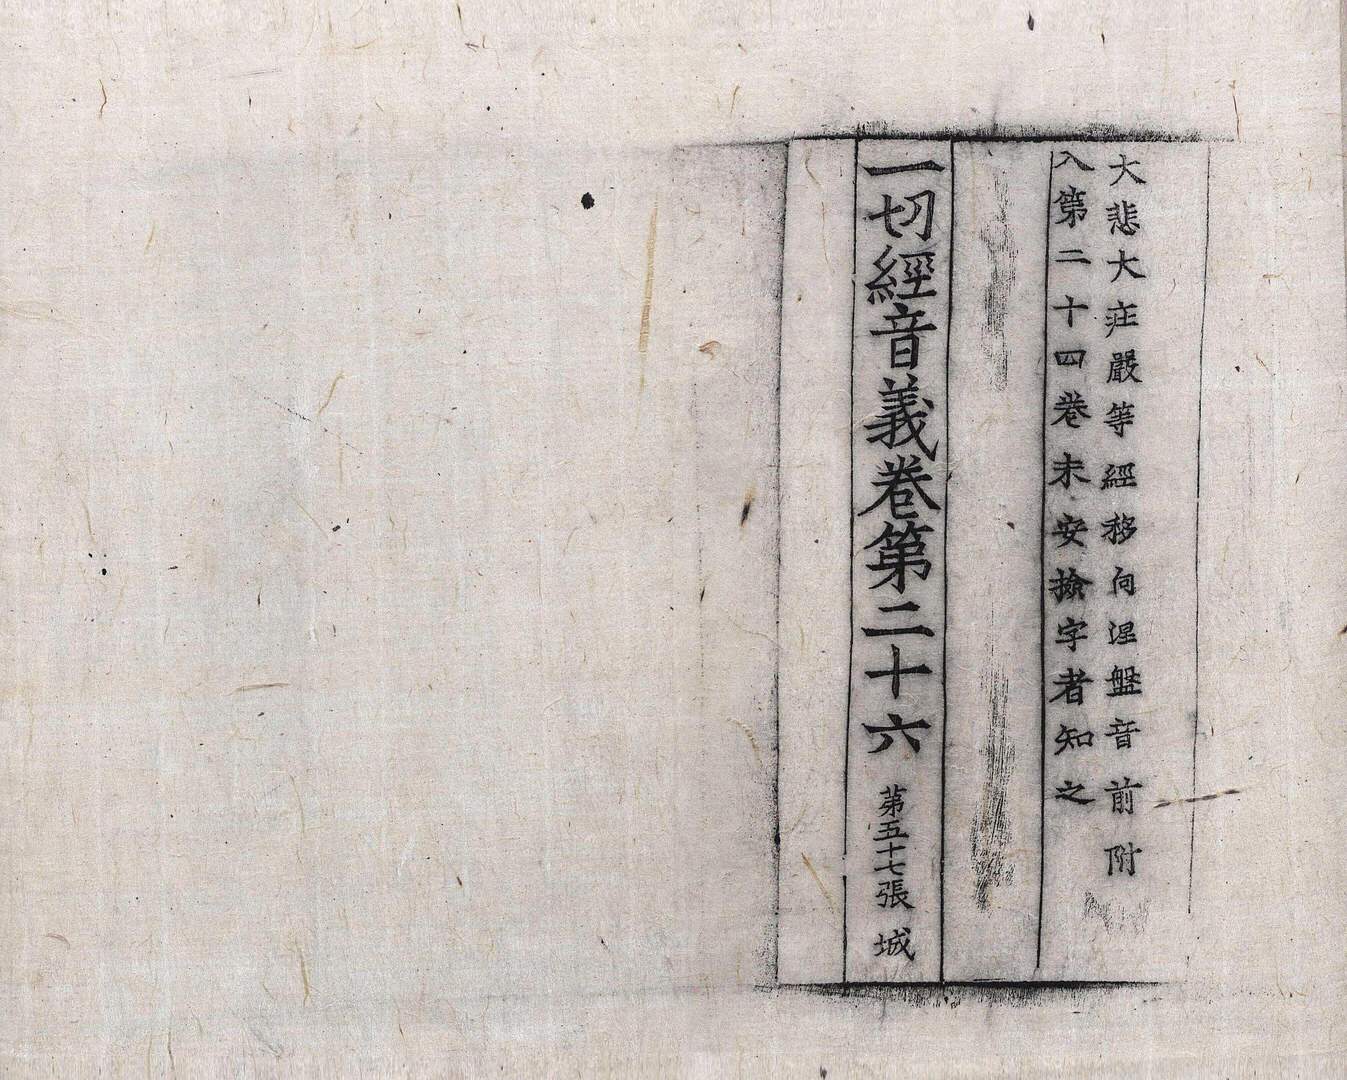 大悲大莊嚴等經移向涅盤音前附
入第二十四卷未安撿字者知之
一切經音義卷第二十六
第五十七張 城